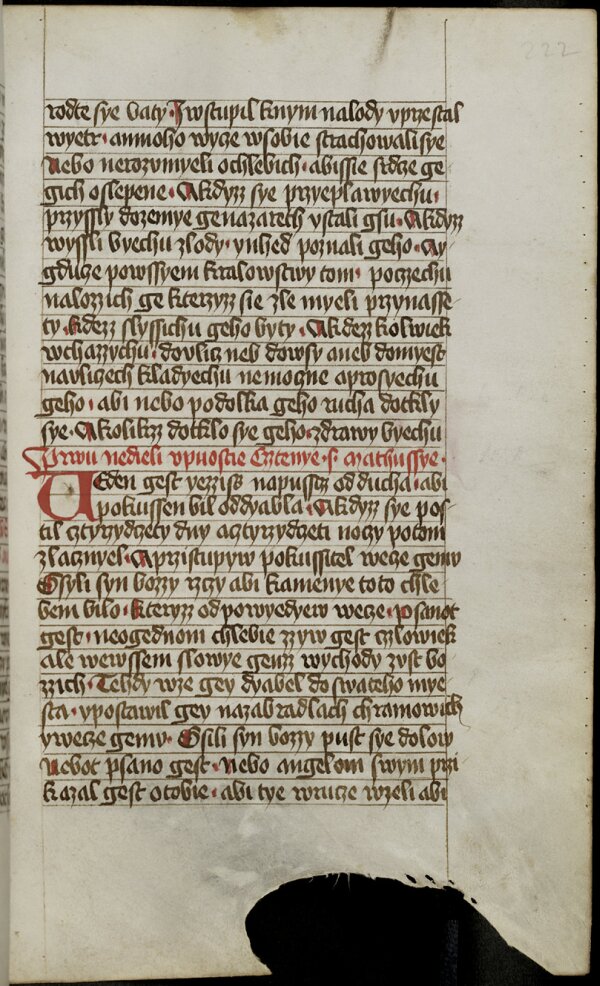 222
rodte sye baty · J wstupil knym nalody vprzestal
wyetr · amnoho wycze wsobie strachowali sye
Nebo nerozvmyeli ochlebich · abissie srdcze ge
gich oslepene · Akdyzz sye przyeplawyechu ·
przyssly dozemye genazareth vstali gsu · Akdyzz
wyssli byechu zlody · ynhed poznali geho · Ay
gducze powssyem kralowstwy tom · poczechu
nalozzich ge kterzyzz sie zle myeli przynasse
ty · kdezz slyssichu geho byty · Akdezz kolwiek
wchazzychu · dovlicz neb dowsy aneb domyest
navliczech kladyechu nemoczne aprosyechu
geho · abi nebo podolka geho rucha dotkly
sye · Akolikzz dotklo sye geho · zdrawy byechu
Prwu nedieli vpuostie Cztenye · s · mathussye ·
Ueden gest yezziss napusscz od ducha · abi
pokussen bil oddyabla · Akdyzz sye pos
til cztyrzydczety dny acztyrzydczeti noczy potom
zlacznyel · Aprzistupyw pokussitel wecze gemv
Gsyli syn bozzy rzczy abi kamenye toto chle
bem bilo · kteryzz odpowyedyew wecze · psanot
gest · neogednom chlebie zzyw gest czlowiek
ale wewssem slowye genzz wychody zvst bo
zzich · Tehdy wze gey dyabel doswateho mye
sta · ypostawil gey nazabradlach chramowich
ywecze gemv · Gsili syn bozzy pust sye dolow
Nebot psano gest · nebo angelom swym przi
kazal gest otobie · abi tye wrucze wzeli abi